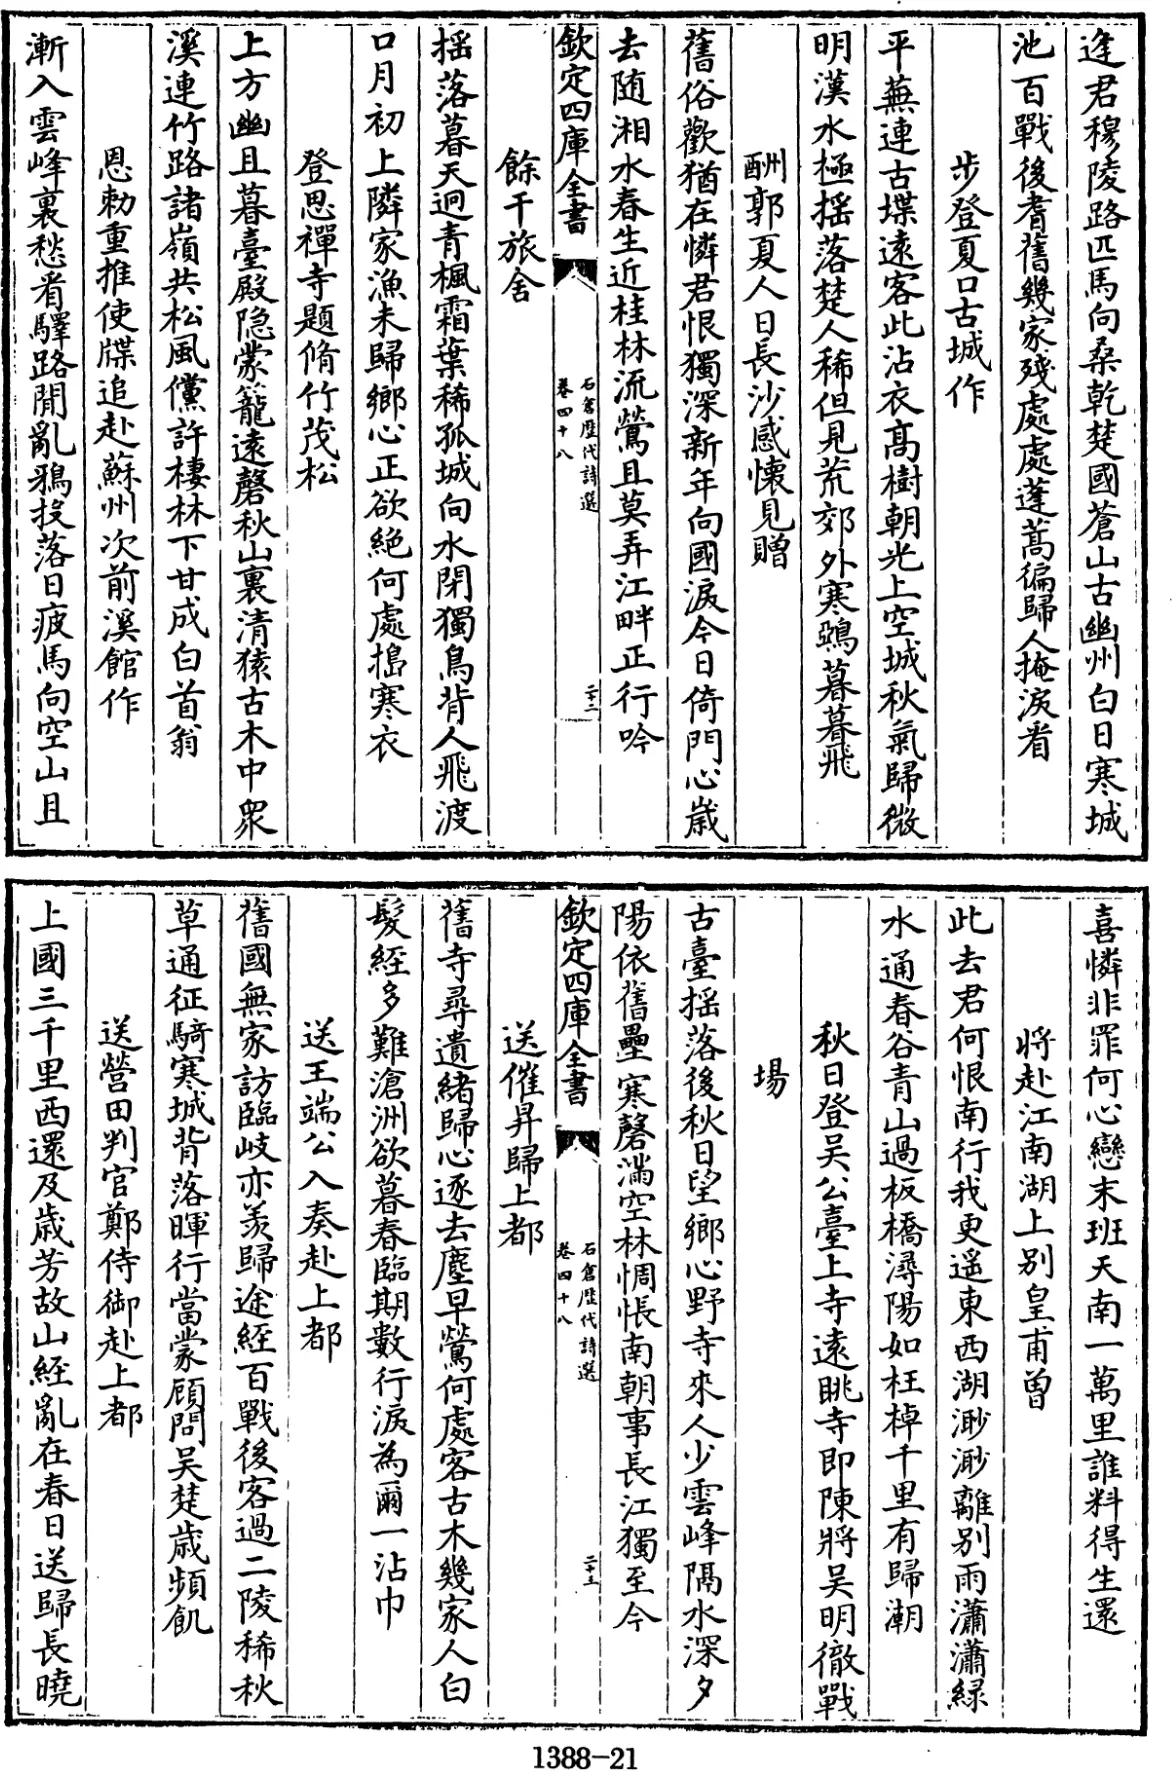 逢君穆陵路匹馬向桑乾楚國蒼山古幽州白日寒城
池百戰後耆舊幾家殘處處蓬蒿徧歸人掩淚看
步登夏口古城作
平蕪連古堞遠客此沾衣髙樹朝光上空城秋氣歸微
明漢水極揺落楚人稀但見荒郊外寒鴉暮暮飛
酬郭夏人日長沙感懷見贈
舊俗歡猶在憐君恨獨深新年向國淚今日倚門心嵗
去随湘水春生近桂林流鶯且莫弄江畔正行吟
欽定四庫全書
石倉歴代詩選
卷四十八
二十二
餘干旅舍
揺落暮天迥青楓霜葉稀孤城向水閉獨鳥背人飛渡
口月初上隣家漁未歸鄉心正欲絶何處搗寒衣
登思禪寺題脩竹茂松
上方幽且暮臺殿隠蒙籠遠磬秋山裏清猿古木中衆
溪連竹路諸嶺共松風儻許棲林下甘成白首翁
恩勅重推使牒追赴蘇州次前溪館作
漸入雲峰裏愁看驛路閒亂鴉投落日疲馬向空山且
喜憐非罪何心戀末班天南一萬里誰料得生還
將赴江南湖上別皇甫曾
此去君何恨南行我更遥東西湖渺渺離別雨瀟瀟緑
水通春谷青山過板橋潯陽如枉棹千里有歸潮
秋日登吴公臺上寺逺眺寺即陳將吴明徹戰
場
古臺揺落後秋日望鄉心野寺來人少雲峰隔水深夕
陽依舊壘寒磬滿空林惆悵南朝事長江獨至今
欽定四庫全書
石倉歴代詩選
卷四十八
二十三
送催昇歸上都
舊寺尋遺緒歸心逐去塵早鶯何處客古木幾家人白
髪經多難滄洲欲暮春臨期數行淚為爾一沾巾
送王端公入奏赴上都
舊國無家訪臨岐亦羨歸途經百戰後客過二陵稀秋
草通征騎寒城背落暉行當蒙顧問吴楚嵗頻飢
送營田判官鄭侍御赴上都
上國三千里西還及嵗芳故山經亂在春日送歸長曉
1388-21